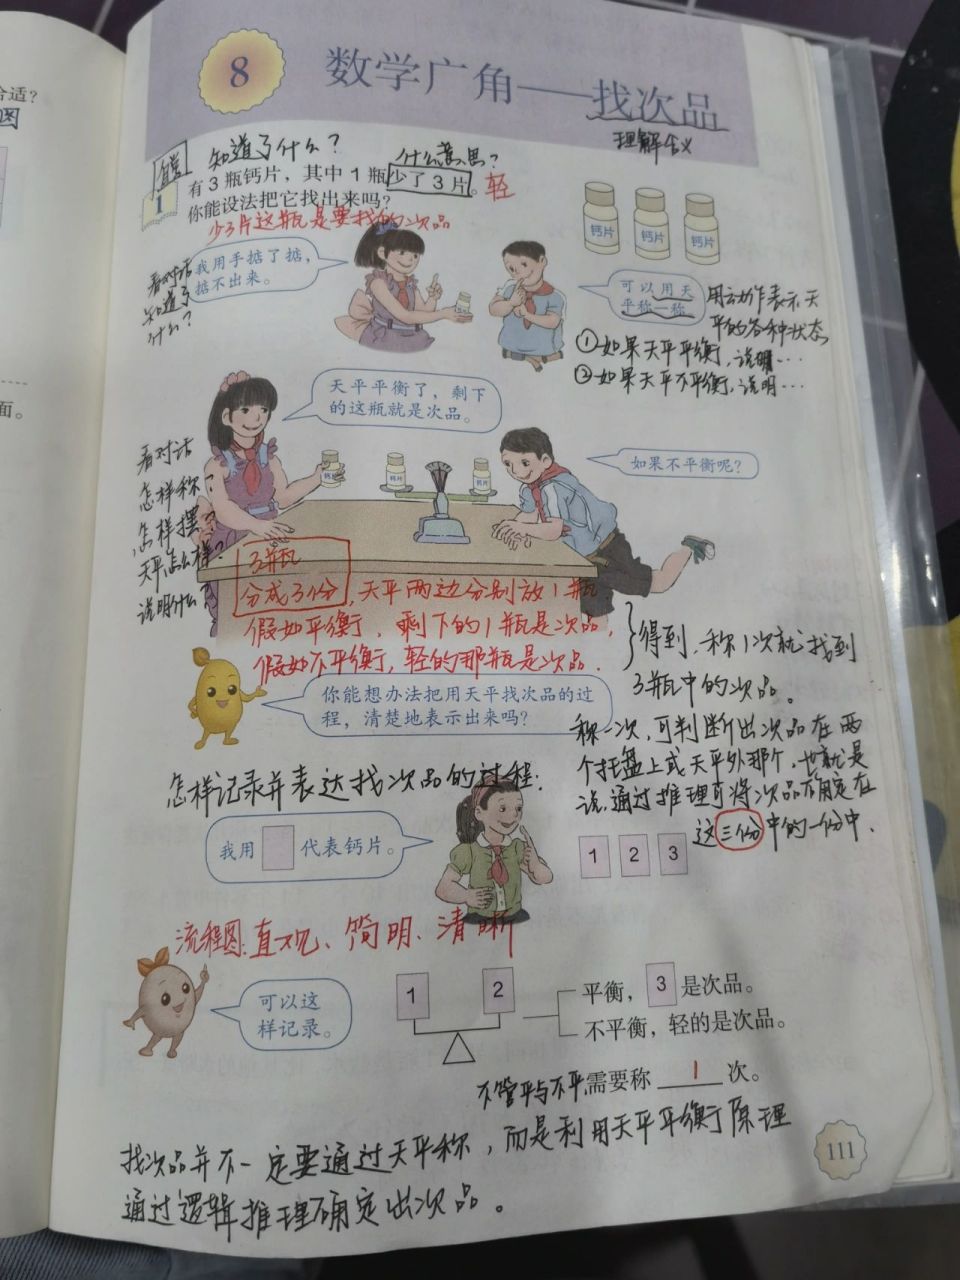 合适?
图
面。
8
数学广角——找次品
理解含义
自学
知道了什么?
什么意思?
1
有3瓶钙片，其中1瓶少了3片。轻
你能设法把它找出来吗?
少3片这瓶是要找的次品
钙片
钙片
钙片
看对话
知道了
什么?
我用手掂了掂，
掂不出来。
可以用天
平称一称。
用动作表示天
平的各种状态
①如果天平平衡，说明…
②如果天平不平衡，说明…
天平平衡了，剩下
的这瓶就是次品。
如果不平衡呢?
钙片
钙片
钙片
看对话
怎样称?
怎样摆?
天平怎么样?
说明什么?
3瓶
分成3份，天平两边分别放1瓶
假如平衡，剩下的1瓶是次品，
假如不平衡，轻的那瓶是次品.
得到，称1次就找到
3瓶中的次品。
你能想办法把用天平找次品的过
程，清楚地表示出来吗?
称一次，可判断出次品在两
个托盘上或天平外那个，也就是
说，通过推理可将次品确定在
这三份中的一份中.
怎样记录并表达找次品的过程:
我用 代表钙片。
1 2 3
流程图:直观、简明、清晰
可以这
样记录。
1 2
平衡， 3 是次品。
不平衡，轻的是次品。
不管平与不平,需要称 1 次。
找次品并不一定要通过天平称，而是利用天平平衡原理
通过逻辑推理确定出次品。
111